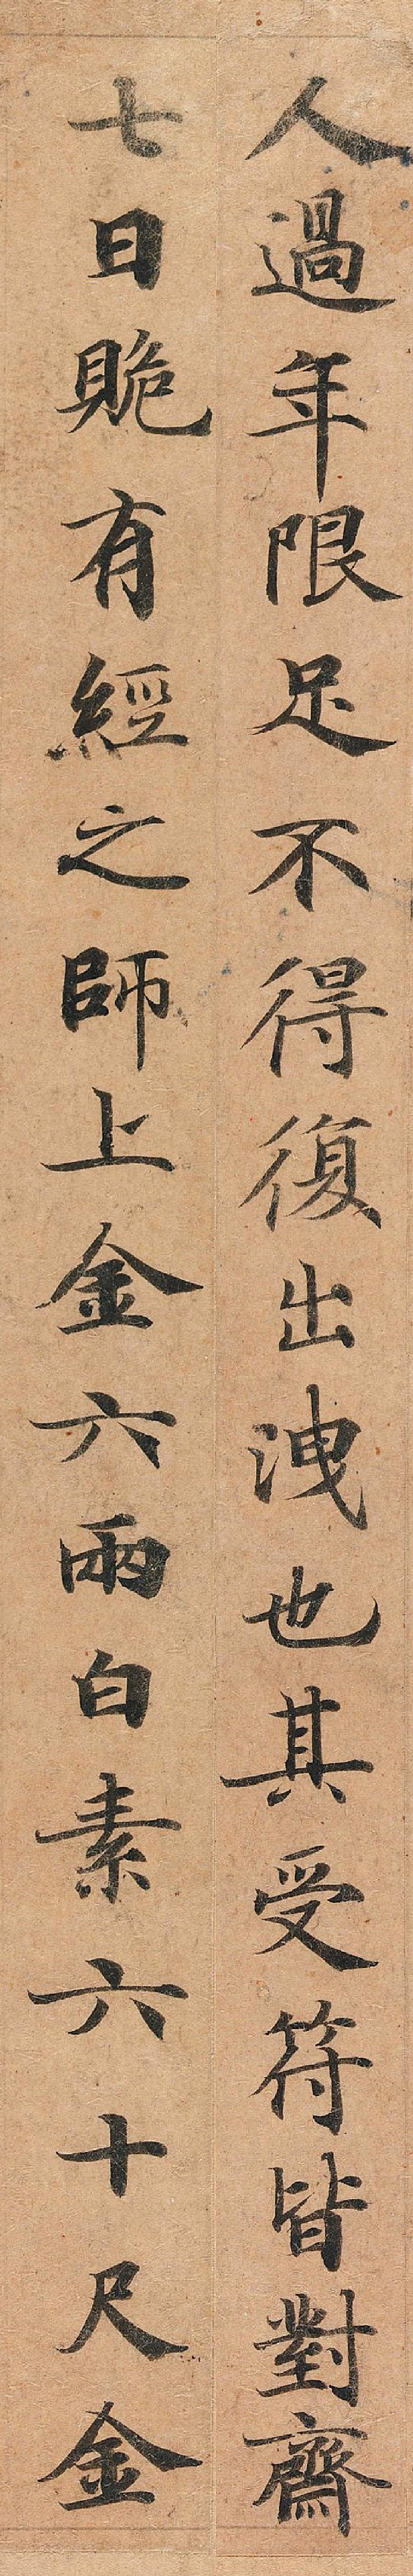 人過年限足不得復出洩也其受符皆對齋
七日賍有經之師上金六兩白素六十尺金